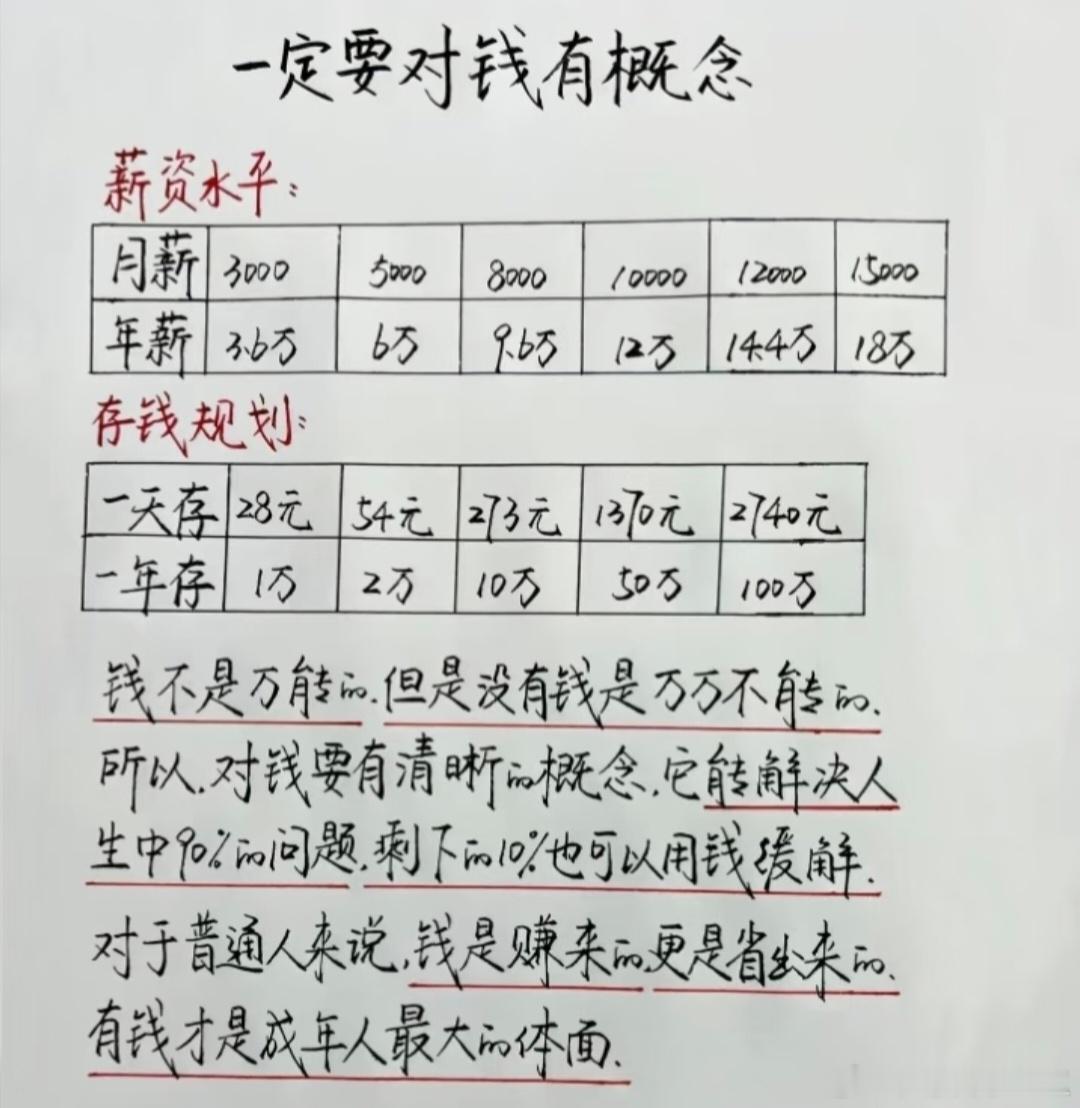 一定要对钱有概念
薪资水平:
月薪 3000 5000 8000 10000 12000 15000
年薪 3.6万 6万 9.6万 12万 14.4万 18万
存钱规划:
一天存 28元 54元 273元 1370元 2740元
一年存 1万 2万 10万 50万 100万
钱不是万能的.但是没有钱是万万不能的.
所以.对钱要有清晰的概念.它能解决人
生中90%的问题.剩下的10%也可以用钱缓解.
对于普通人来说,钱是赚来的,更是省出来的.
有钱才是成年人最大的体面.